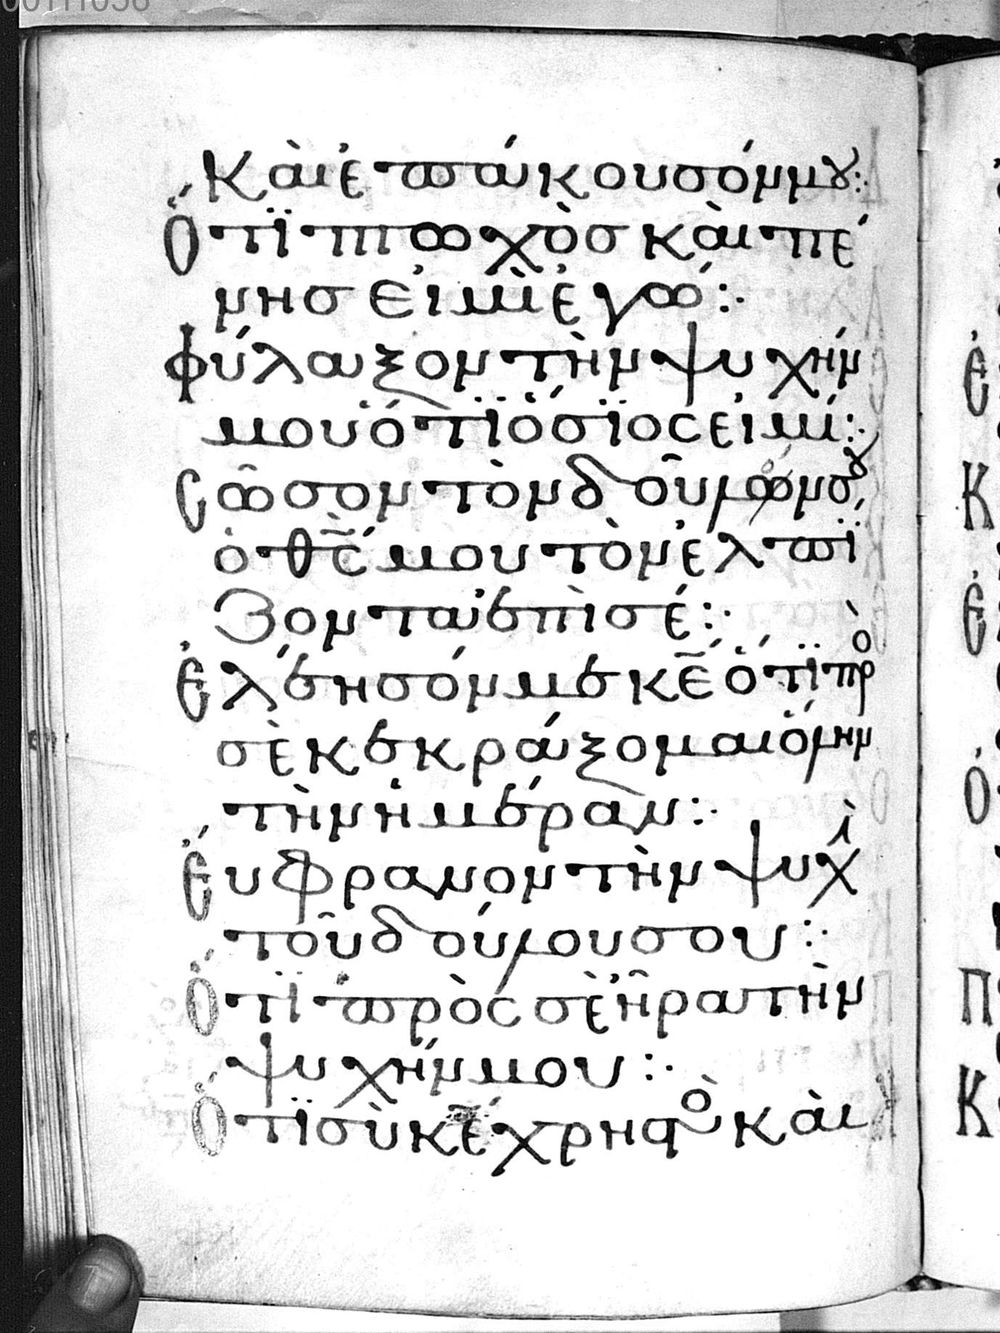 00111058
Κὰι ἐπάκουσόν μου:
Ὅτϊ πτωχὸσ κὰι πέ
νησ εἰμὶ ἐγώ:·
φύλαξον τὴν ψυχήν
μου ὅτϊ ὅσϊος εἰμί:
Σῶσον τὸν δοῦλόν σου
ὁ θς̄ μου τὸν ἐλπϊ
ζοντα ἐπὶ σέ:·
Ἐλέησόν με κε̄ ὅτϊ πρὸ
σὲ κεκράξομαι ὅλην
τὴν ἡμέραν:·
Ἔυφρανον τὴν ψυχὴ
τοῦ δούλου σου:·
Ὅτϊ πρὸς σὲ ἦρα τὴν
ψυχήν μου:·
Ὅτϊ σὺ κε̄ χρηστὸ κὰι